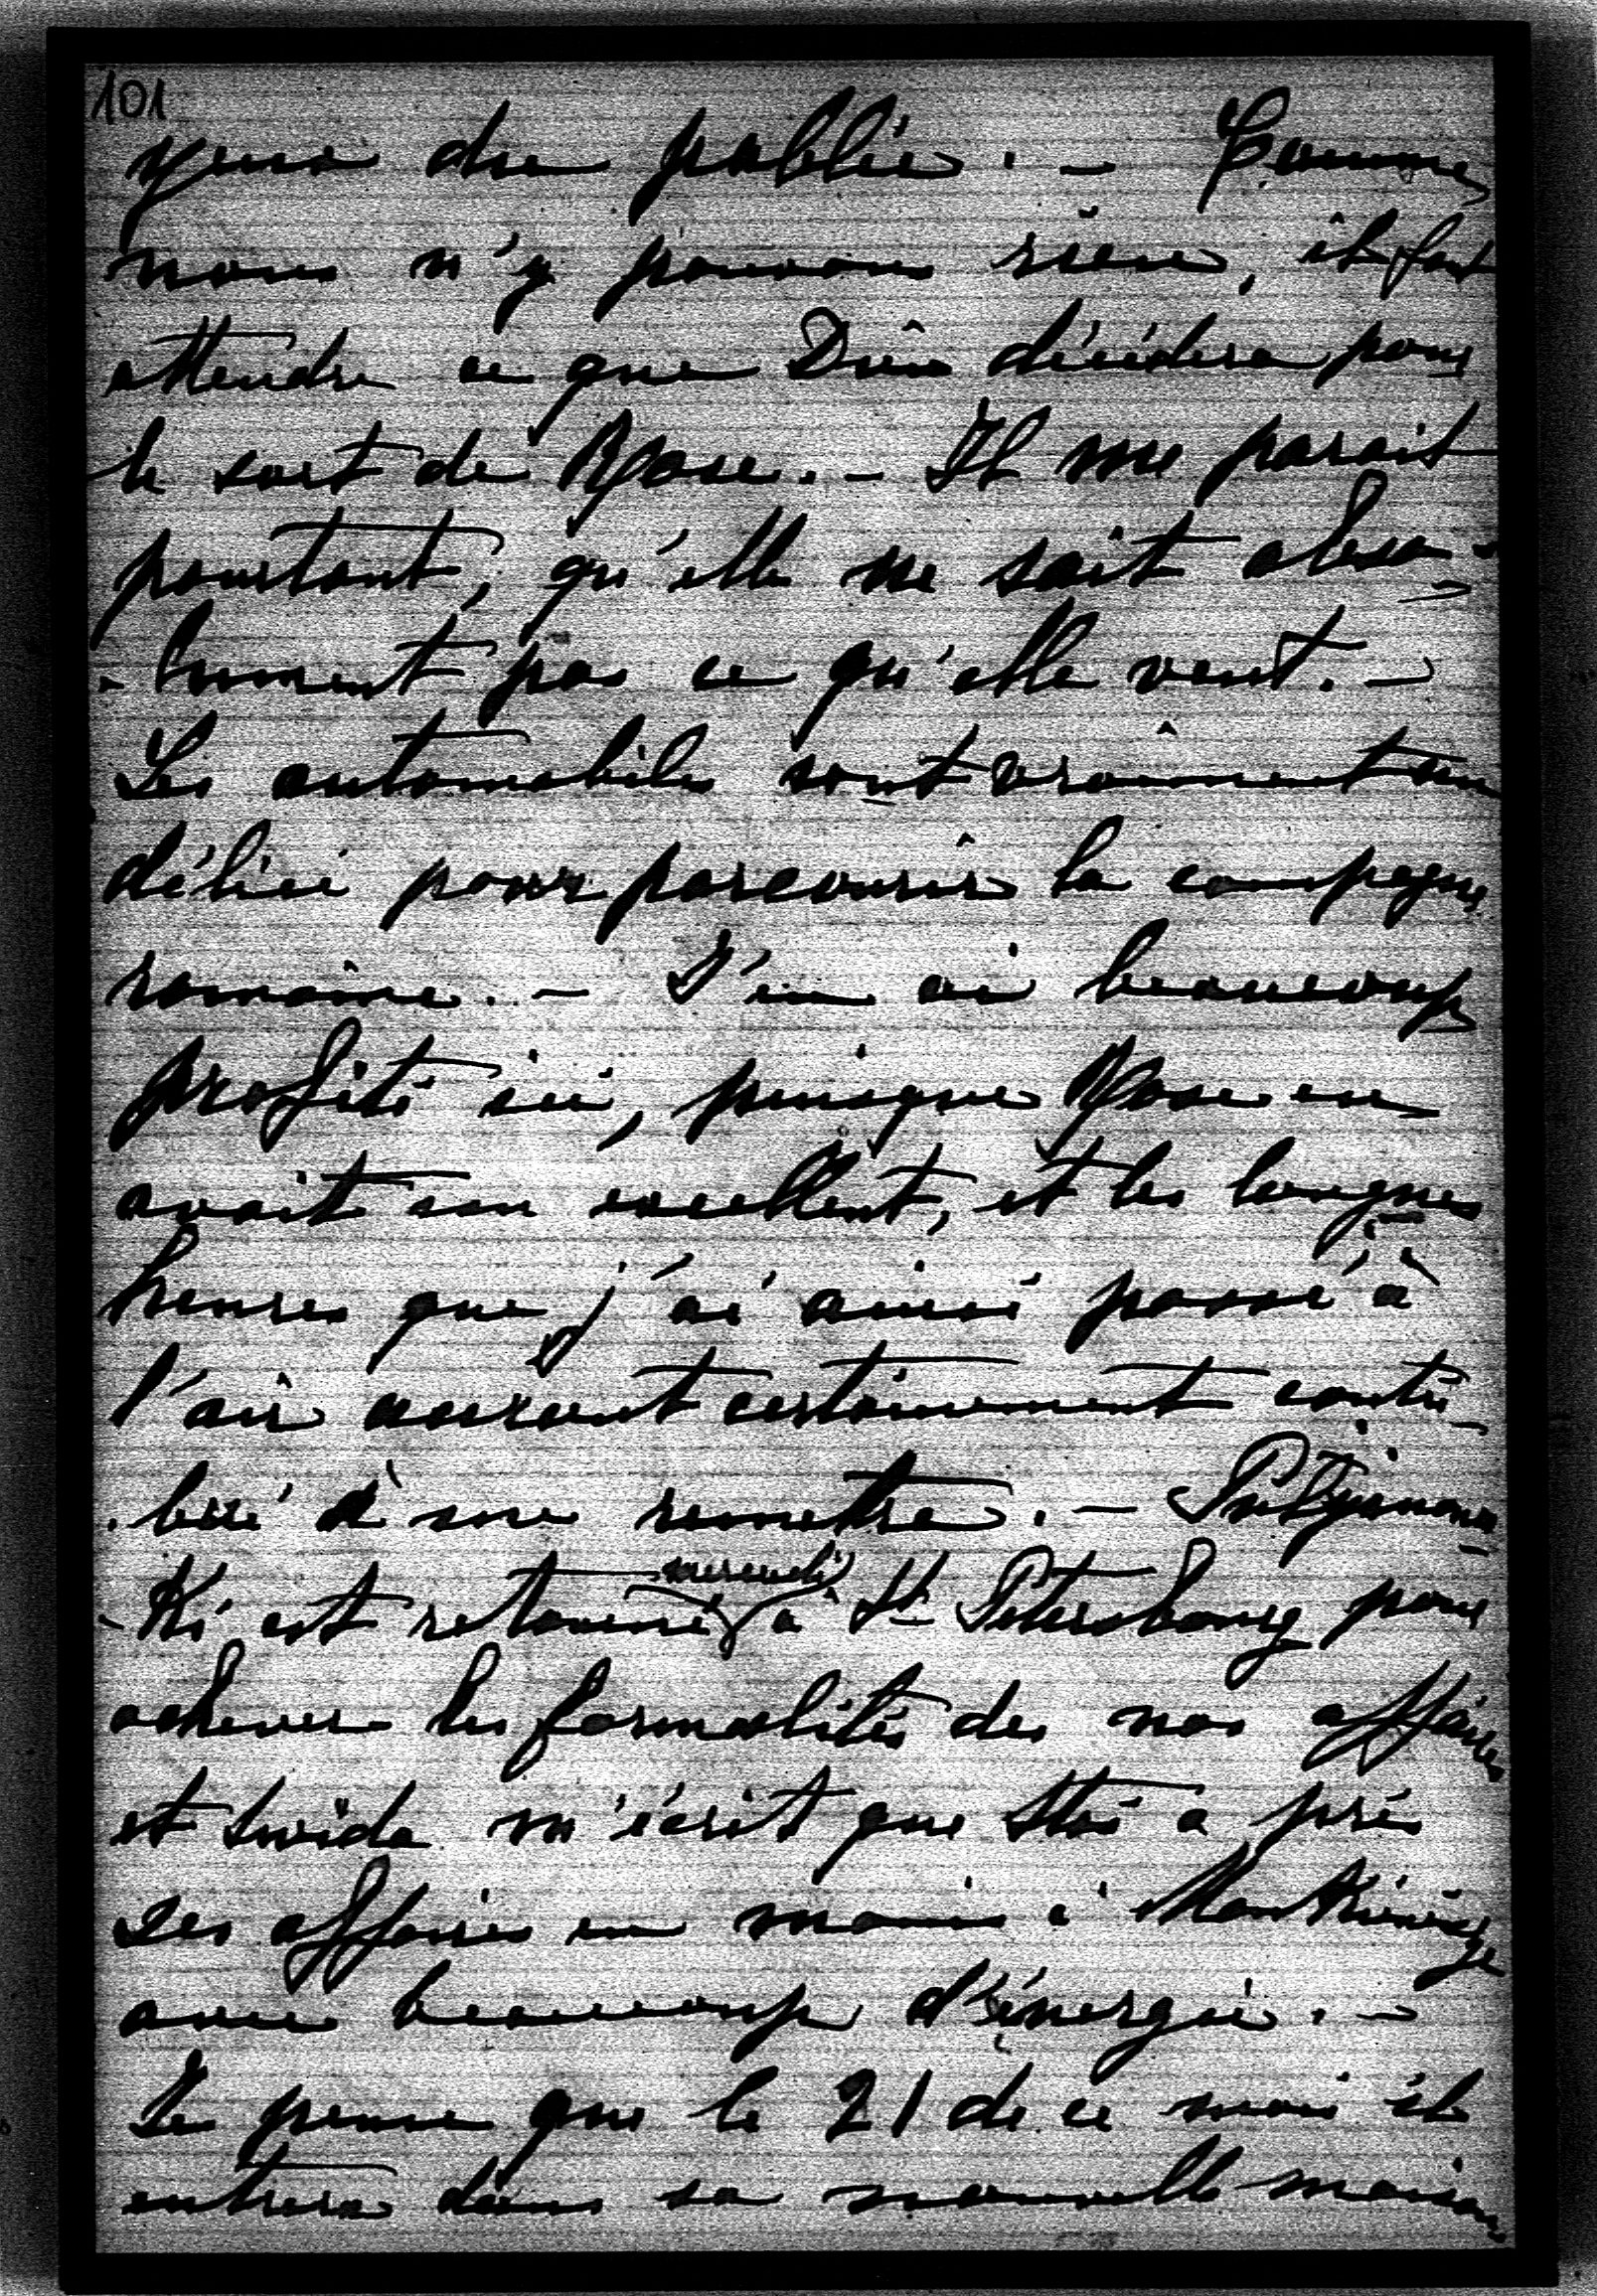 101
yeux du public. – Comme
nous n'y pouvons rien, il faut
attendre ce que Dieu décidera pour
le sort de Rose. – Il me parait
pourtant, qu'elle ne sait abso-
-lument pas ce qu'elle veut. –
Les automobiles sont vraiment un
délice pour parcourir la campagne
romaine. – J'en ai beaucoup
profité ici, puisque Rose en
avait un excellent, et les longues
heures que j'ai ainsi passé à
l'air auront certainement contri-
-bué à me remettre. –
-ki est retourné mercredi à St Petersbourg pour
achever les formalités de nos affaires
et m'écrit que a pris
ses affaires en main à
avec beaucoup d'énergie. –
Je pense que le 21 de ce mois il
entrera dans sa nouvelle maison